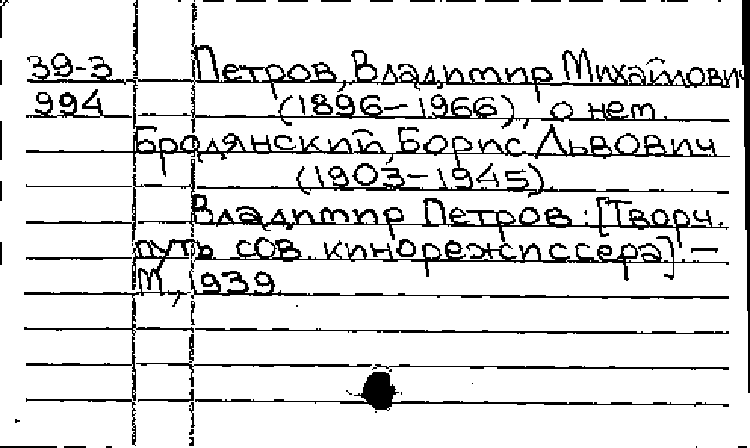 39-3 Петров, Владимир Михайлович
994 (1896-1966), о нем.
Бродянский, Борис Львович
(1903-1945).
Владимир Петров: [Творч.
путь сов. кинорежиссера] -
М., 1939